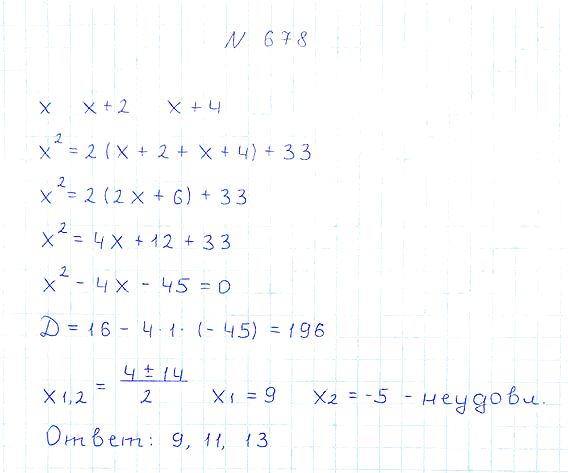 N 678
x   x+2   x+4
x² = 2(x + 2 + x + 4) + 33
x² = 2(2x + 6) + 33
x² = 4x + 12 + 33
x² - 4x - 45 = 0
D = 16 - 4·1·(-45) = 196
x1,2 = (4 ± 14)/2   x1 = 9   x2 = -5 - неудовл.
Ответ: 9, 11, 13